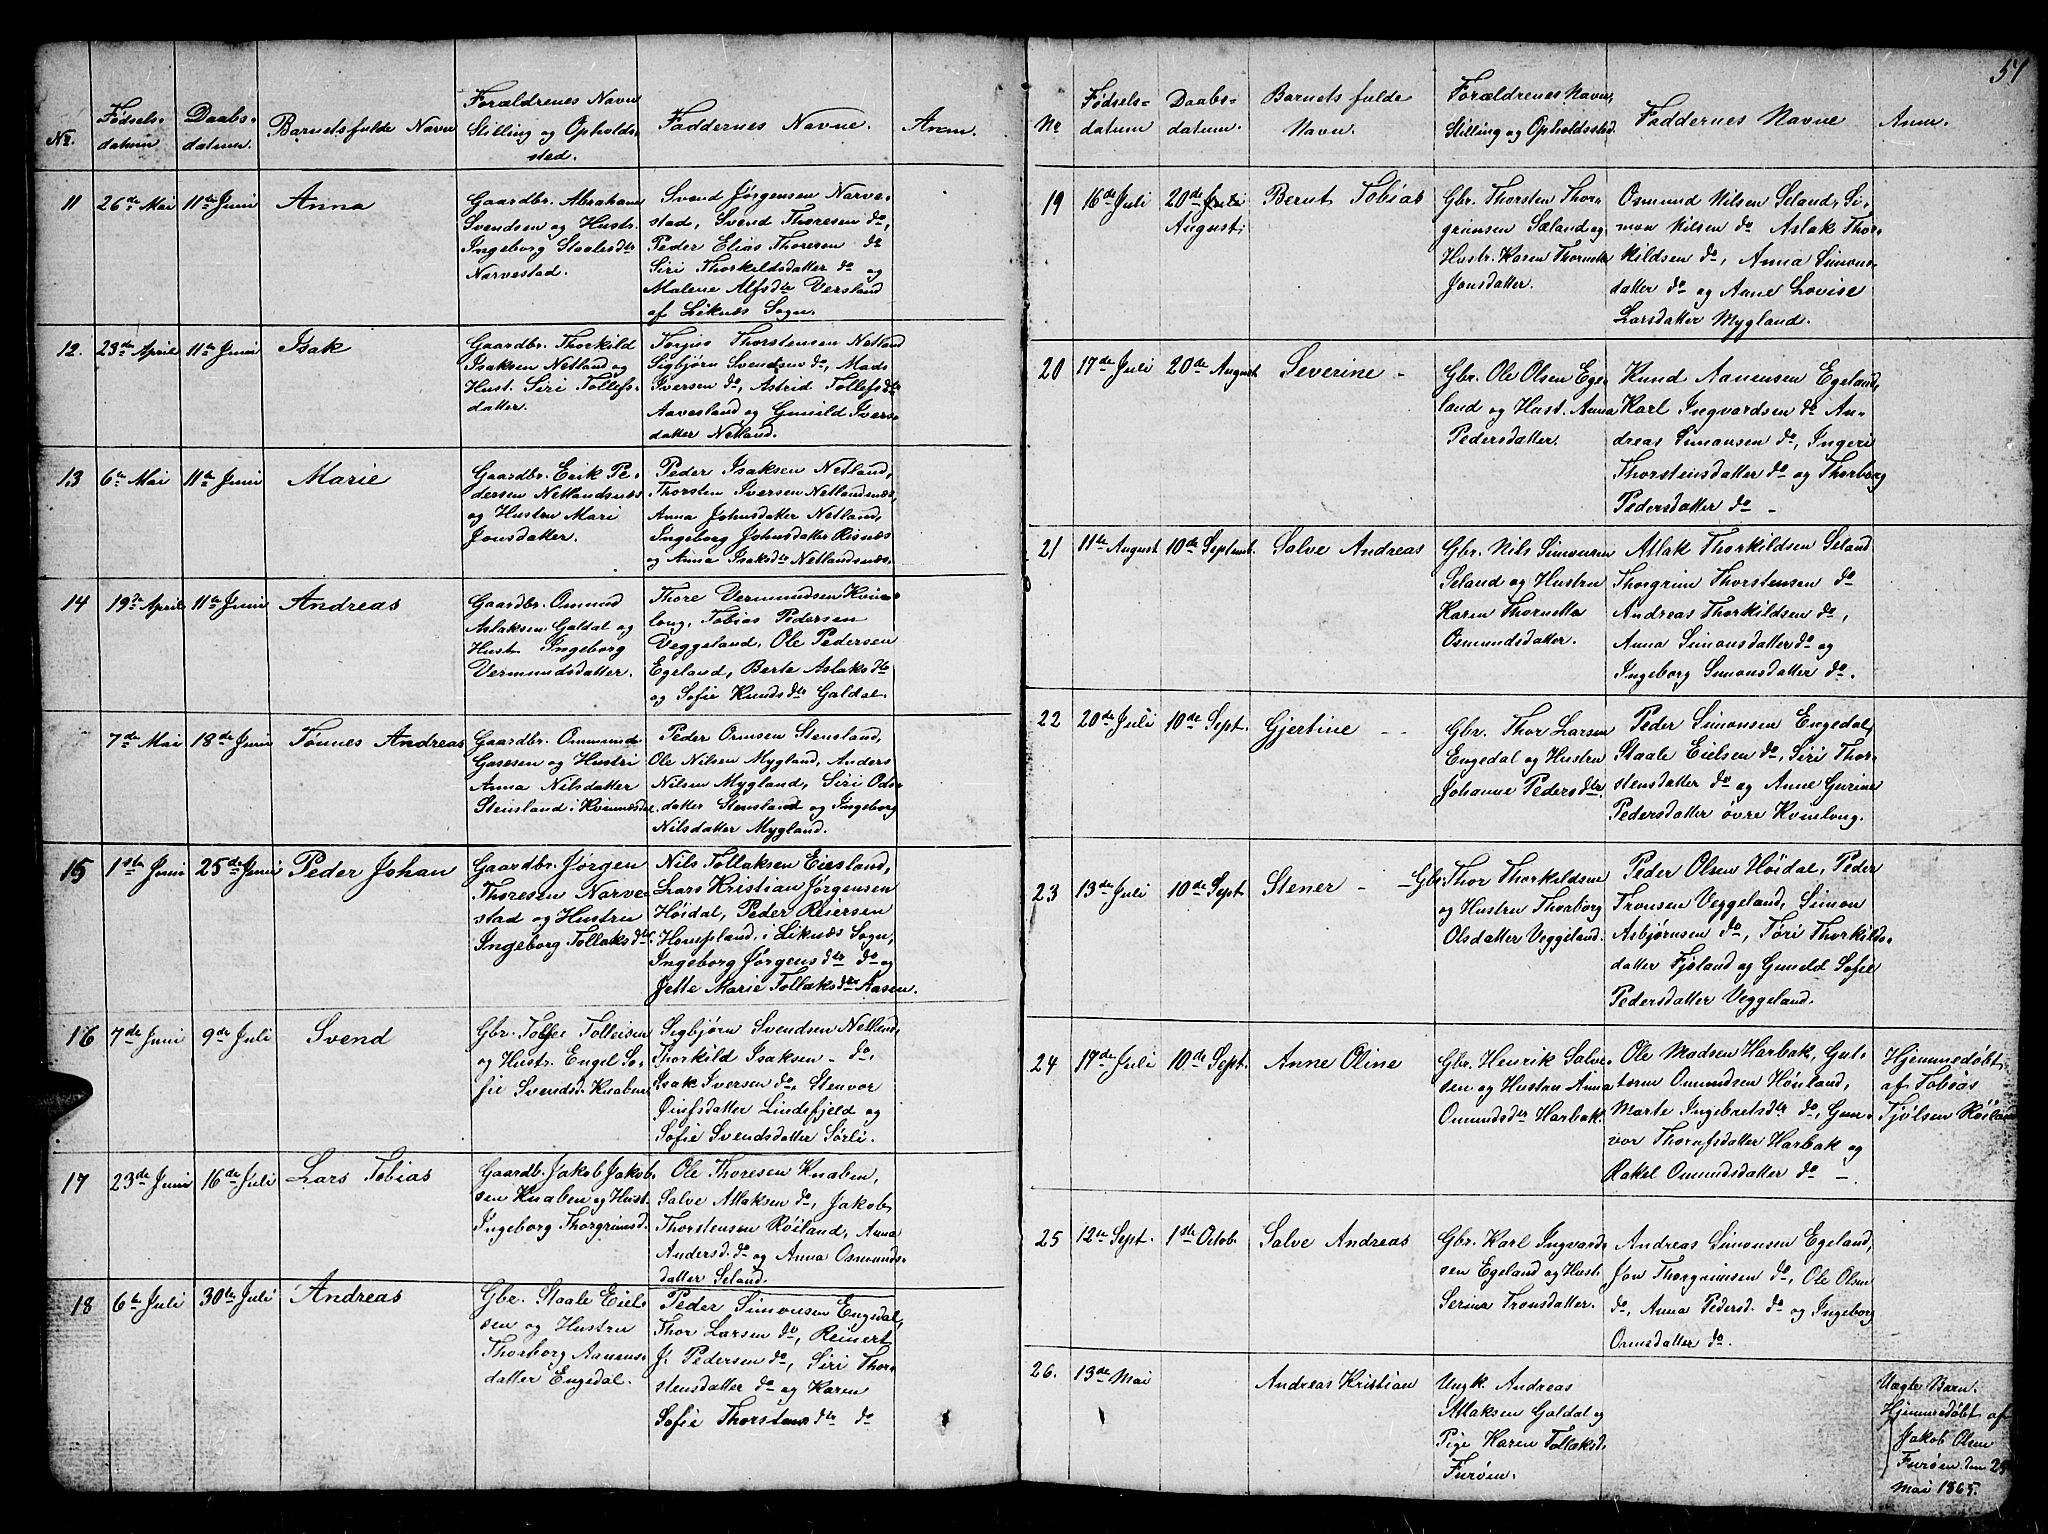 No.
Fødsels-
datum
Daabs-
datum.
Barnets fulde Navn
Forældrenes Navn
Stilling og Opholds-
sted.
Faddernes Navne.
Anm.
11
26de Mai
11te Juni
Anna
Gaardbr. Abraham
Svendsen og Hustr.
Ingeborg Staalesdtr
Narvestad.
Svend Jørgensen Narve-
stad, Svend Thoresen do,
Peder Elias Thoresen do
Siri Thorkildsdatter do og
Malene Alfsdtr Versland
af Liknæs Sogn.
12.
23de April
11te Juni
Isak
Gaardbr. Thorkild
Isaksen Netland og
Hust. Siri Tollefs-
datter.
Torjus Thorstensen Netland
Sigbjørn Svendsen do, Mads
Iversen do, Astrid Tollefsdtr
Aavesland og Gunild Ivers-
datter Netland.
13
6te Mai
11te Juni
Marie
Gaardbr. Erik Pe-
dersen Netlandsnæs
og Hustru Mari
Jonsdatter.
Peder Isaksen Netland,
Thorsten Iversen Netlandsnæs,
Anna Johnsdatter Netland,
Ingeborg Johnsdatter Risnæs
og Anna Isaksdtr Netlandsnæs.
14
19de April
11te Juni
Andreas
Gaardbr. Omund
Aslaksen Galdal og
Hust. Ingeborg
Vermundsdatter.
Thore Vermundsen Kvin-
long, Tobias Pedersen
Veggeland, Ole Pedersen
Egeland, Berte Aslaksdtr
og Sofie Knudsdtr Galdal.
7de Mai
18de Juni
Tønnes Andreas
Gaardbr. Ommund
Gasesen og Hustru
Anna Nilsdatter
Stensland i Kvinnesdal
Peder Ormsen Stensland,
Ole Nilsen Mygland, Anders
Nilsen Mygland, Siri Ods-
datter Stensland og Ingeborg
Nilsdatter Mygland.
15
1ste Juni
25de Juni
Peder Johan
Gaardbr. Jørgen
Thoresen Narve-
stad og Hustru
Ingeborg Tollaksdtr.
Nils Tollaksen Eiesland,
Lars Kristian Jørgensen
Høidal, Peder Reiersen
Hompland, i Liknæs Sogn,
Ingeborg Jørgensdtr do og
Jette Marie Tollaksdtr Aasen.
16
7de Juni
9de Juli
Svend
Gbr. Tollef Tolleisen
og Hustr. Engel So-
fie Svendsd. Knaben
Sigbjørn Svendsen Netland,
Thorkild Isaksen - do,
Isak Iversen do, Stenvor
Ønifsdatter Lindefjeld og
Sofie Svendsdatter Sørli.
17
23de Juni
16de Juli
Lars Tobias
Gaardb. Jakob Jakob-
sen Knaben og Hust.
Ingeborg Thorgrimsd.
Ole Thoresen Knaben,
Salve Atlaksen do, Jakob
Thorstensen Røiland, Anna
Andersd. do og Anna Osmunds-
datter Seland.
18
6te Juli
30te Juli
Andreas
Gbr. Staale Eiel-
sen og Hustru
Thorborg Aanens-
datter Engedal.
Peder Simonsen Engedal,
Thor Larsen do, Reinert
J. Pedersen do, Siri Thor-
stensdatter do og Karen
Sofie Thorstensdtr do
51
No
Fødsels-
datum
Daabs-
datum.
Barnets fulde
Navn.
Forældrenes Navn,
Stilling og Opholdssted.
Faddernes Navne
Anm.
19
16de Juli
20de Juli
August.
Bernt Tobias
Gbr. Thorsten Thor-
grimsen Sæland og
Hustr. Karen Thornetta
Jonsdatter.
Osmund Nilsen Seland, Si-
mon Nilsen do Aslak Thor-
kildsen do, Anna Simons-
datter do og Anne Lovise
Larsdatter Mygland.
20
17de Juli
20de August
Severine -
Gbr. Ole Olsen Ege-
land og Hust. Anna
Pedersdatter.
Knud Aanensen Egeland,
Karl Ingvardsen do An-
dreas Simonsen do, Ingeri
Thorstensdatter do og Thorborg
Pedersdatter do -
21
11te August
10de Septemb.
Salve Andreas
Gbr. Nils Simonsen
Seland og Hustru
Karen Thornetta
Osmundsdatter.
Atlak Thorkildsen Seland
Thorgrim Thorstensen do
Andreas Thorkildsen do,
Anna Simonsdatter do og
Ingeborg Simonsdatter do.
22
20de Juli
10de Sept.
Gjertine - -
Gbr. Thor Larsen
Engedal og Hustru
Johanne Pedersdtr.
Peder Simonsen Engedal,
Staale Eielsen do, Siri Thor-
stensdatter do og Anne Gurine
Pedersdatter øvre Kvinlong.
23
13de Juli
10de Sept.
Stener -
- Gbr. Thor Thorkildsen
og Hustru Thorborg
Olsdatter Veggeland.
Peder Olsen Høidal, Peder
Tronsen Veggeland, Simon
Asbjørnsen do, Tøri Thorkilds-
datter Fjeland og Guneld Sofie
Pedersdatter Veggeland.
24
17de Juli
10de Sept.
Anne Oline
Gbr. Henrik Salve-
sen og Hustru Anna
Omundsdtr Harbak.
Ole Madsen Harbak, Gut-
torm Omundsen Hønland,
Marte Ingebretsdtr do, Gun-
vor Thorufsdatter Harbak og
Rakel Omundsdatter do -
Hjemmedøbt
af Tobias
Tjølsen Røiland
25
12te Sept.
1ste Octob.
Salve Andreas
Gbr. Karl Ingvard-
sen Egeland og Hust.
Serina Tronsdatter.
Andreas Simonsen Egeland,
Jon Thorgrimsen do, Ole Olsen
do, Anna Pedersd. do og Ingeborg
Ormsdatter do.
26.
13de Mai
Andreas Kristian
Ungk. Andreas
Atlaksen Galdal og
Pige Karen Tollaksd.
Furøen.
Uægte Barn.
Hjemmedøbt af
Jakob Olsen
Furøen den 29
Mai 1865.